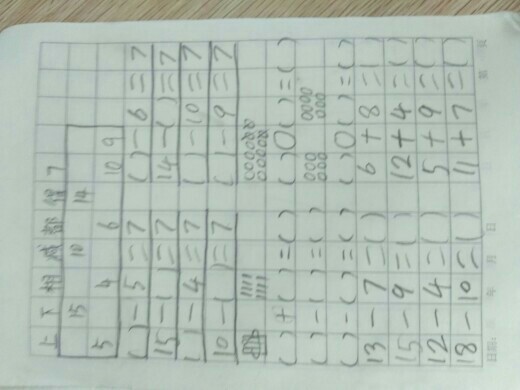 上下相减都得7
15 10 14
5 4 6 10 9
( )-5=7 ( )-6=7
15-( )=7 14-( )=7
( )-4=7 ( )-10=7
10-( )=7 ( )-9=7
( )+( )=( ) ( )○( )=( )
( )-( )=( )
( )-( )=( ) ( )○( )=( )
13-7=( ) 6+8=( )
15-9=( ) 12+4=( )
12-4=( ) 5+9=( )
18-10=( ) 11+7=( )
日期: 年 月 日